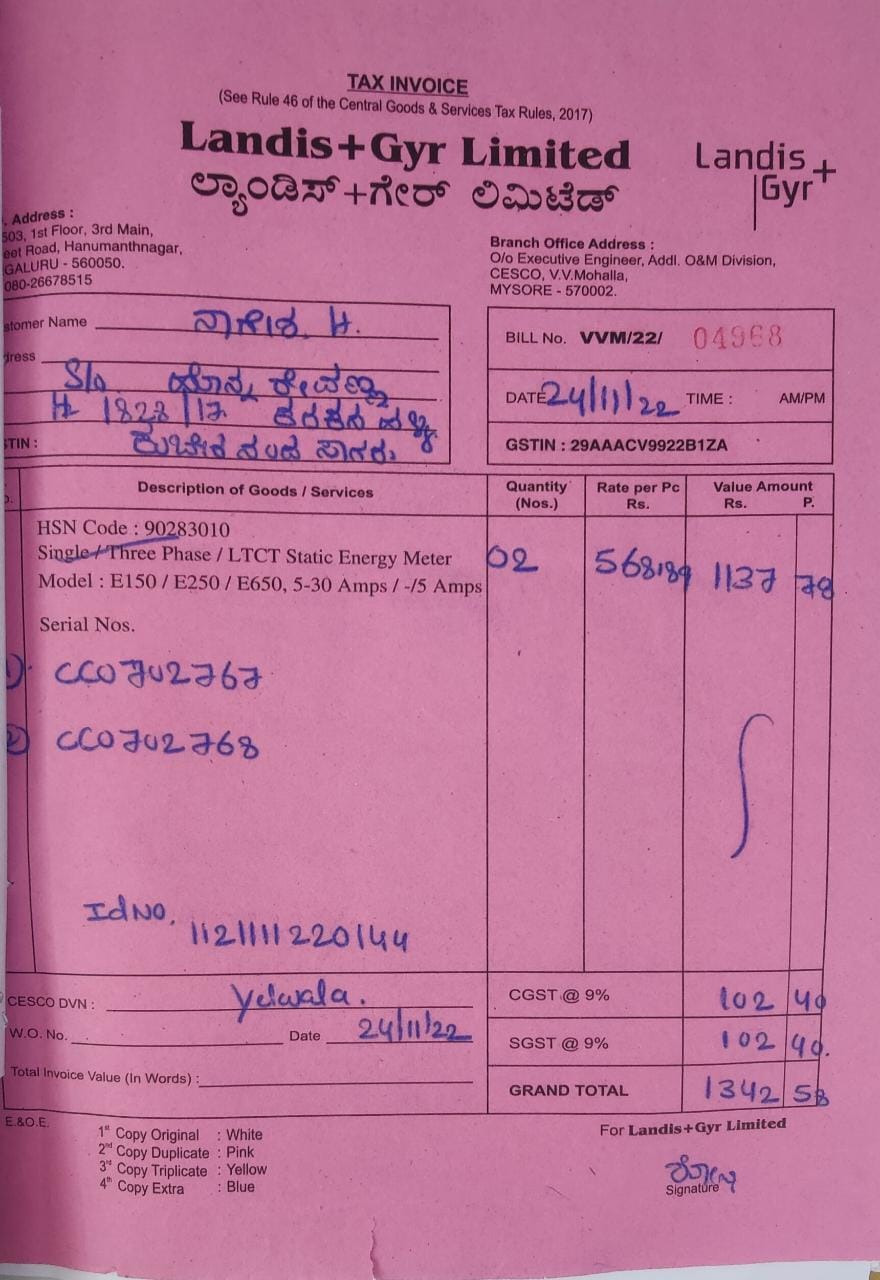 TAX INVOICE
(See Rule 46 of the Central Goods & Services Tax Rules, 2017)
Landis+Gyr Limited
ಲ್ಯಾಂಡಿಸ್+ಗೇರ್ ಲಿಮಿಟೆಡ್
Landis
Gyr+
. Address :
503, 1st Floor, 3rd Main,
eet Road, Hanumanthnagar,
GALURU - 560050.
080-26678515
Branch Office Address :
O/o Executive Engineer, Addl. O&M Division,
CESCO, V.V.Mohalla,
MYSORE - 570002.
stomer Name ನಾಗೇಶ. H.
dress
S/o
H 1828/17
TIN :
BILL No. VVM/22/ 04968
DATE 24/11/22 TIME : AM/PM
GSTIN : 29AAACV9922B1ZA
Description of Goods / Services Quantity (Nos.) Rate per Pc Rs. Value Amount Rs. P.
HSN Code : 90283010
Single / Three Phase / LTCT Static Energy Meter 02 568.89 1137 78
Model : E150 / E250 / E650, 5-30 Amps / -/5 Amps
Serial Nos.
1) CC0702767
2) CC0702768
Id No. 1121111220144
CESCO DVN : Yelwala.
CGST @ 9% 102 40
W.O. No. Date 24/11/22
SGST @ 9% 102 40.
Total Invoice Value (In Words) :
GRAND TOTAL 1342 58
E.&O.E.
1st Copy Original : White
2nd Copy Duplicate : Pink
3rd Copy Triplicate : Yellow
4th Copy Extra : Blue
For Landis+Gyr Limited
Signature